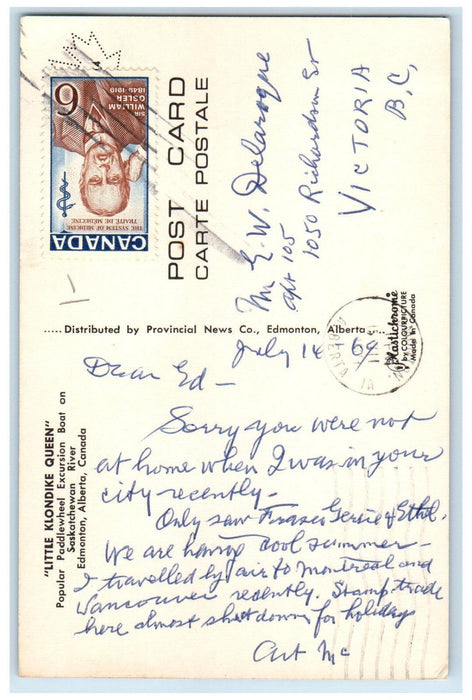 CANADA
6
SIR
WILLIAM
OSLER
1849-1919
THE SYSTEM OF MEDICINE
TRAITÉ DE MÉDECINE
POST CARD
CARTE POSTALE
Mr E. W. Delaroque
Apt 105
1050 Richardson St
VICTORIA
B.C,
..... Distributed by Provincial News Co., Edmonton, Alberta .....
Plastichrome
by COLOURPICTURE
Made in Canada
"LITTLE KLONDIKE QUEEN"
Popular Paddlewheel Excursion Boat on
Saskatchewan River
Edmonton, Alberta, Canada
July 14 69
Dear Ed –
Sorry you were not
at home when I was in your
city recently –
Only saw Fraser Gersie & Ethel.
We are having cool summer –
I travelled by air to Montreal and
Vancouver recently. Stamp trade
here almost shut down for holidays
Art Mc